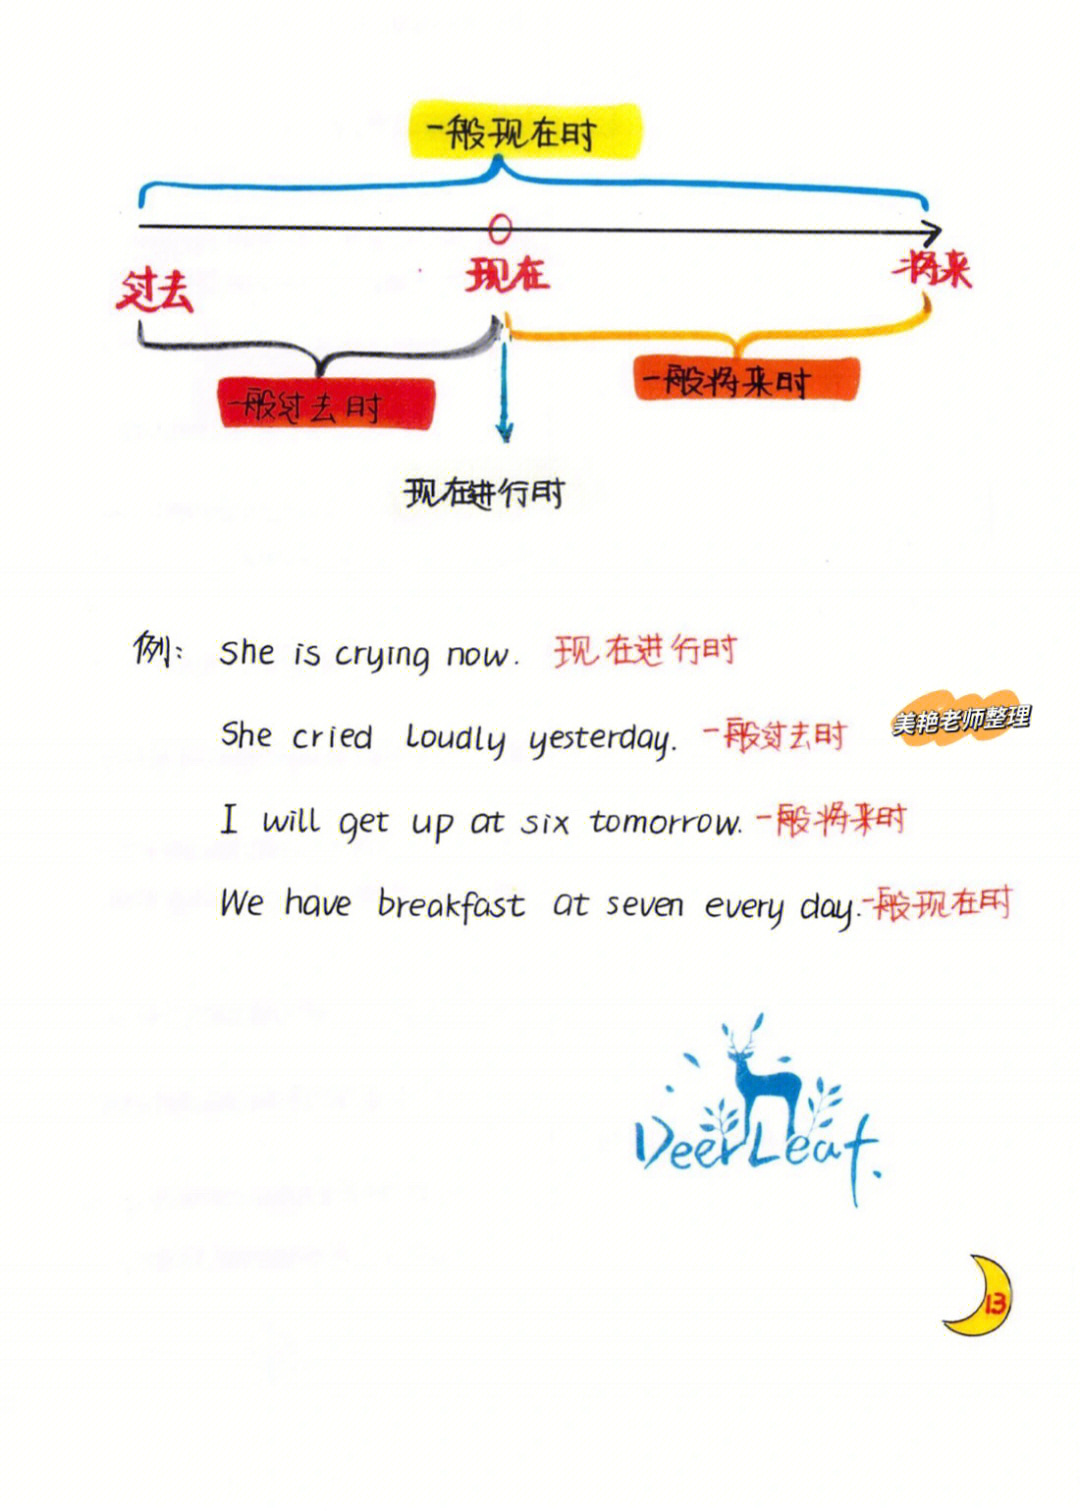 一般现在时
过去 现在 将来
一般过去时 一般将来时
现在进行时
例: She is crying now. 现在进行时
She cried loudly yesterday. 一般过去时
美艳老师整理
I will get up at six tomorrow. 一般将来时
We have breakfast at seven every day. 一般现在时
Deer Leaf.
13